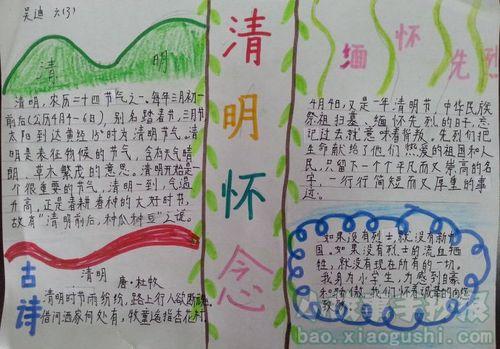 吴迪 六(3)
清 明
清明，农历二十四节气之一。每年三月初
前后(公历4月4-6日)，别名踏春节，三月节
太阳到达黄经15°时为清明节气。清
明是表征物候的节气，含有天气晴
朗、草木繁茂的意思。清明开始是
个很重要的节气，清明一到，气温
升高，正是春耕春种的大好时节，
故有"清明前后，种瓜种豆"之说。
古诗
清明
唐·杜牧
清明时节雨纷纷，路上行人欲断魂
借问酒家何处有，牧童遥指杏花村
清明怀念
缅怀先烈
4月4日，又是一年清明节，中华民族
祭祖扫墓、缅怀先烈的日子。忘
记过去就意味着背叛。先列们把
生命献给了他们热爱的祖国和人
民，只留下一个个平凡而又崇高的名
字，一行行简短而又厚重的事
迹。
如果没有烈士，就没有新中
国。如果没有烈士的流血牺
牲，就没有现在所有的一切。
我身为小学生，力感到自豪
bao.xiaogushi.com